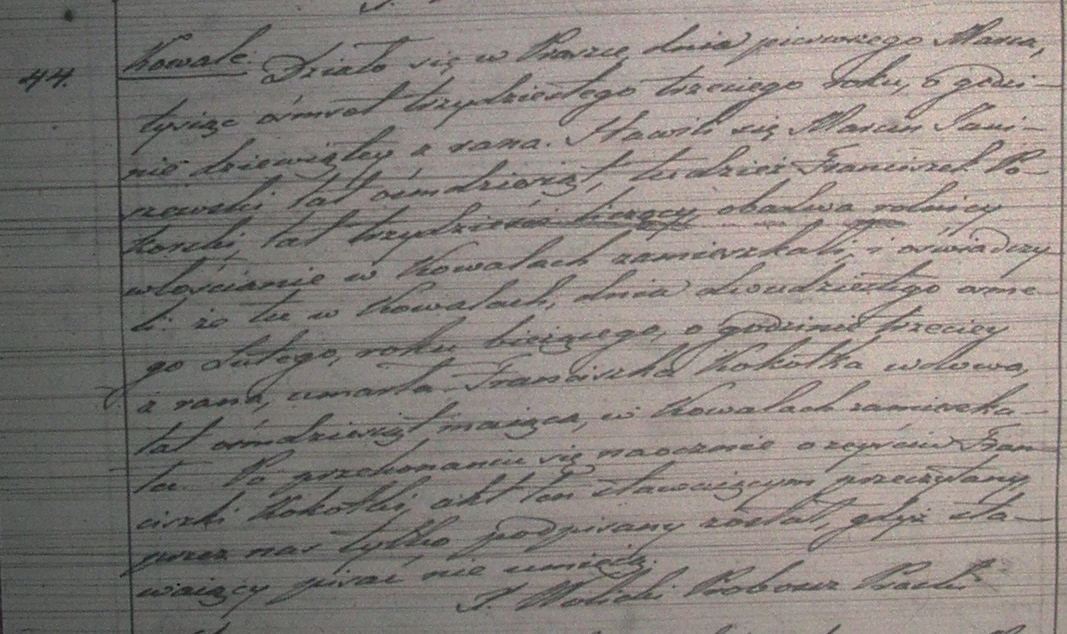 44.
Kowale. Działo się w Praszce dnia pierwszego Marca,
tysiąc ośmset trzydziestego trzeciego roku, o godzi-
nie dziewiątey z rana. Stawili się Marcin Jani-
szewski lat ośmdziesiąt, tudzież Franciszek Po-
korski, lat trzydzieści liczący, obadwa rolnicy
włościanie w Kowalach zamieszkali, i oświadczy-
li: że tu w Kowalach, dnia dwudziestego osme-
go Lutego, roku bieżącego, o godzinie trzeciey
z rana, umarła Franciszka Kokotka wdowa,
lat ośmdziesiąt maiąca, w Kowalach zamieszka-
ła. Po przekonaniu się naocznie o zeyściu Fran-
ciszki Kokotki, akt ten stawaiącym przeczytany
przez nas tylko podpisany został, gdyż sta-
waiący pisać nie umieią.
Proboszcz